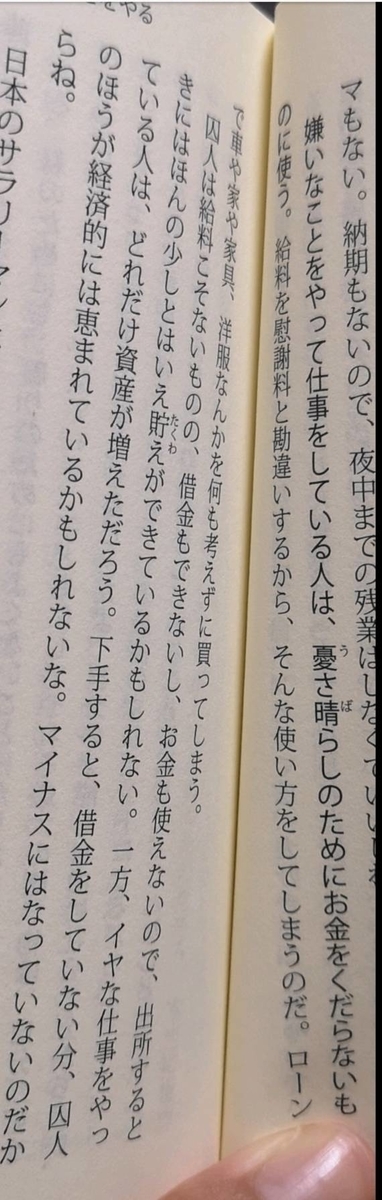 マもない。納期もないので、夜中までの残業はしなくていいしね
嫌いなことをやって仕事をしている人は、憂さ晴らしのためにお金をくだらないも
のに使う。給料を慰謝料と勘違いするから、そんな使い方をしてしまうのだ。ローン
で車や家や家具、洋服なんかを何も考えずに買ってしまう。
囚人は給料こそないものの、借金もできないし、お金も使えないので、出所すると
きにはほんの少しとはいえ貯えができているかもしれない。一方、イヤな仕事をやっ
ている人は、どれだけ資産が増えただろう。下手すると、借金をしていない分、囚人
のほうが経済的には恵まれているかもしれないな。マイナスにはなっていないのだか
らね。
日本のサラリーマン
をやる